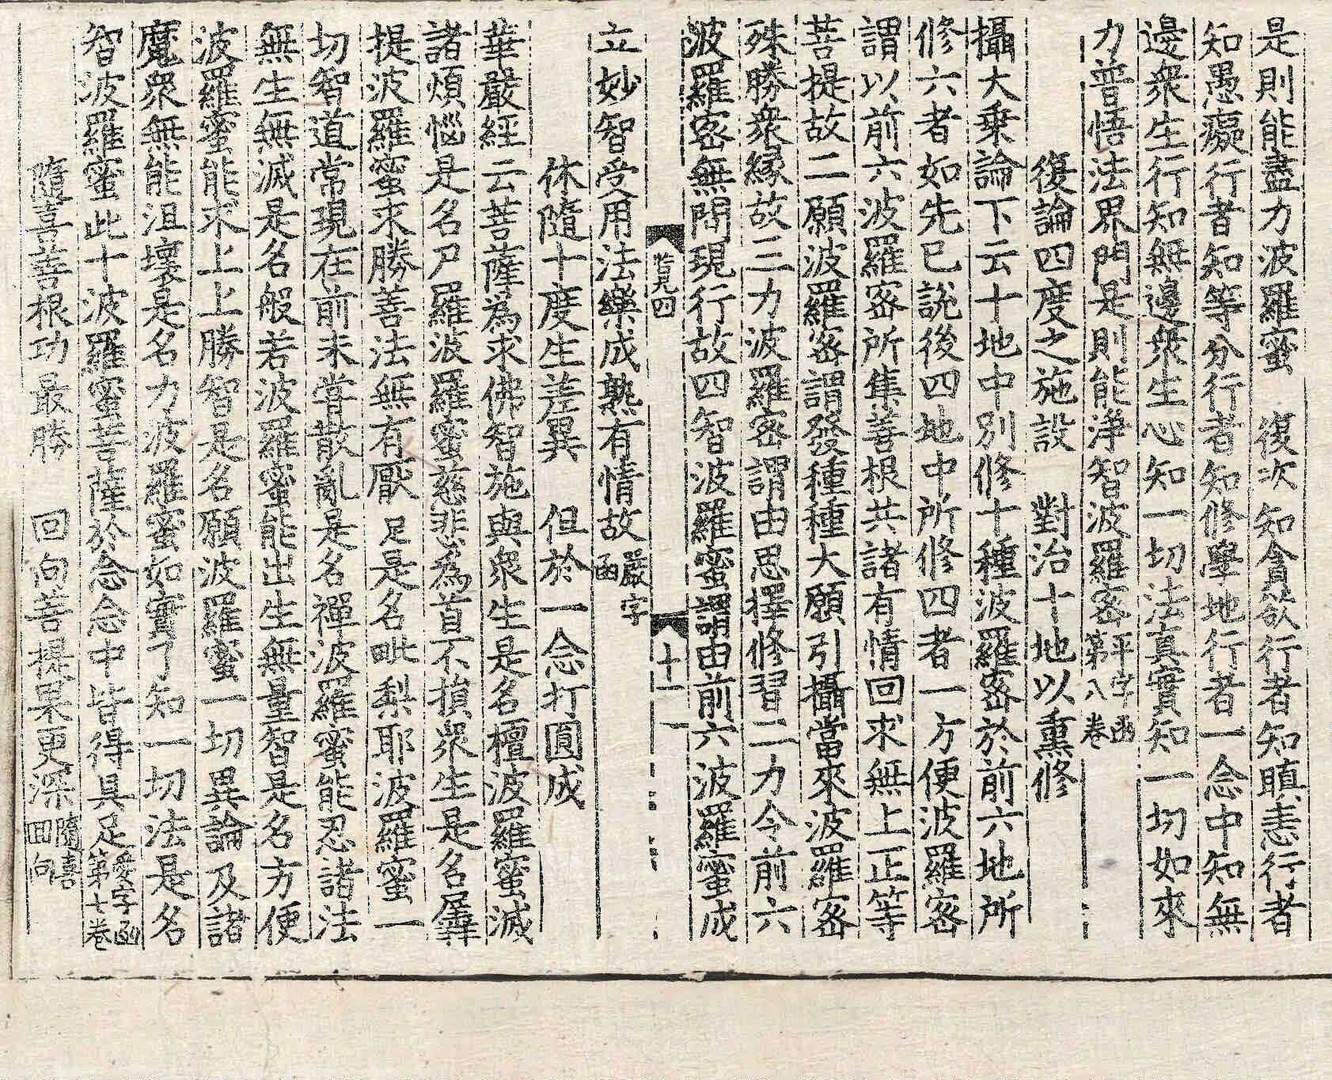 是則能盡力波羅蜜　復次知貪欲行者知瞋恚行者
知愚癡行者知等分行者知修學地行者一念中知無
邊衆生行知無邊衆生心知一切法真實知一切如來
力普悟法界門是則能淨智波羅密平字函第八卷
復論四度之施設　對治十地以熏修
攝大乗論下云十地中別修十種波羅密於前六地所
修六者如先已說後四地中所修四者一方便波羅密
謂以前六波羅密所集善根共諸有情回求無上正等
菩提故二願波羅密謂發種種大願引攝當來波羅密
殊勝衆縁故三力波羅密謂由思擇修習二力令前六
波羅密無間現行故四智波羅蜜謂由前六波羅蜜成
四
十一
立妙智受用法樂成熟有情故嚴字函
休隨十度生差異　但於一念打圓成
華嚴經云菩薩為求佛智施與衆生是名檀波羅蜜滅
諸煩惱是名尸羅波羅蜜慈悲為首不損衆生是名羼
提波羅蜜求勝善法無有厭足是名毗梨耶波羅蜜一
切智道常現在前未甞散亂是名禪波羅蜜能忍諸法
無生無滅是名般若波羅蜜能出生無量智是名方便
波羅蜜能求上上勝智是名願波羅蜜一切異論及諸
魔衆無能沮壞是名力波羅蜜如實了知一切法是名
智波羅蜜此十波羅蜜菩薩於念念中皆得具足愛字函第十卷
隨喜善根功最勝　回向菩提果更深隨喜回向